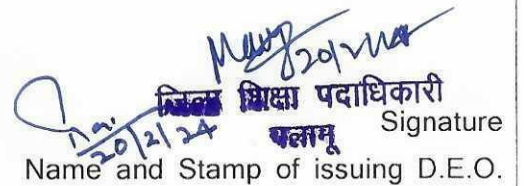 20/2/24
जिला शिक्षा पदाधिकारी
20/2/24
पलामू
Signature
Name and Stamp of issuing D.E.O.